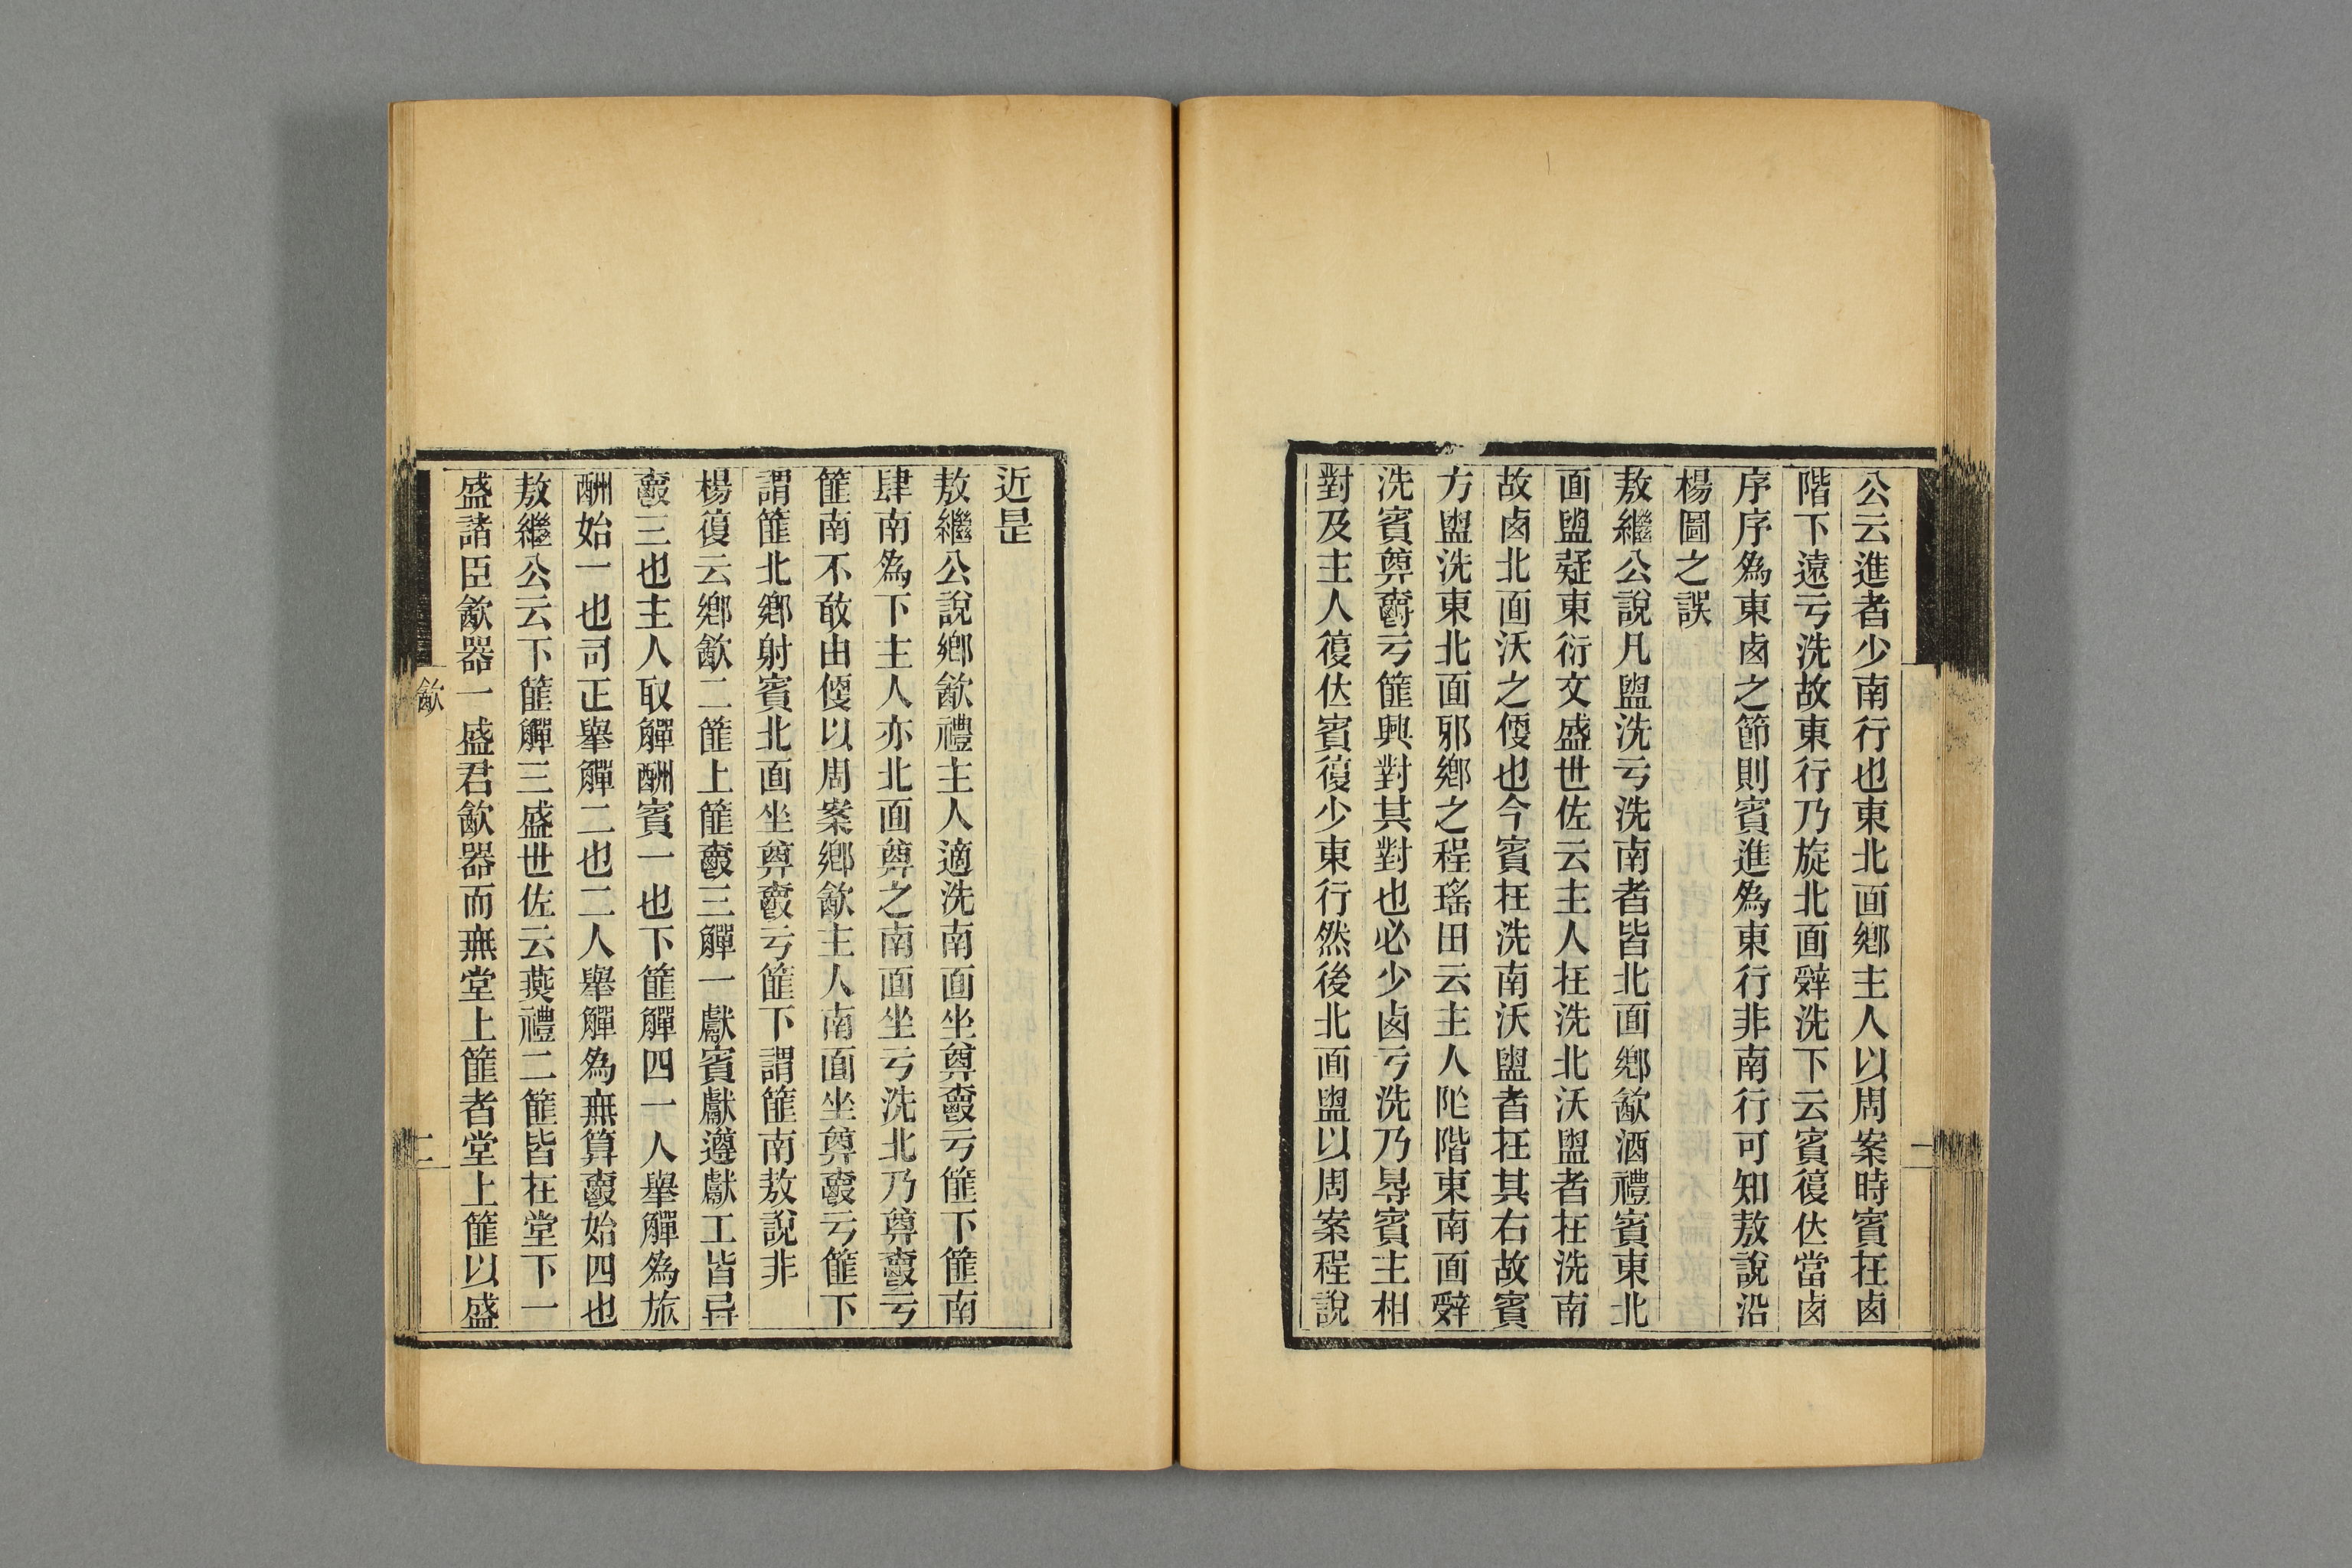 公云進者少南行也東北面鄉主人以周案時賓在卤
階下遠亏洗故東行乃旋北面辤洗下云賓復位當卤
序序為東卤之節則賓進為東行非南行可知敖說沿
楊圖之誤
敖繼公說凡盥洗亏洗南者皆北面鄉歙酒禮賓東北
面盥疑東衍文盛世佐云主人在洗北沃盥者在洗南
故卤北面沃之便也今賓在洗南沃盥者在其右故賓
方盥洗東北面邪鄉之程瑤田云主人阼階東南面辤
洗賓奠爵亏篚興對其對也必少卤亏洗乃㝵賓主相
對及主人復位賓復少東行然後北面盥以周案程說
近是
敖繼公說鄉歙禮主人適洗南面坐奠爵亏篚下篚南
肆南為下主人亦北面奠之南面坐亏洗北乃奠爵亏
篚南不敢由便以周案鄉歙主人南面坐奠爵亏篚下
謂篚北鄉射賓北面坐奠爵亏篚下謂篚南敖說非
楊復云鄉歙二篚上篚爵三觶一獻賓獻遵獻工皆異
爵三也主人取觶酬賓一也下篚觶四一人舉觶為旅
酬始一也司正舉觶二也二人舉觶為無算爵始四也
敖繼公云下篚觶三盛世佐云燕禮二篚皆在堂下一
盛諸臣歙器一盛君歙器而無堂上篚者堂上篚以盛
歙
二